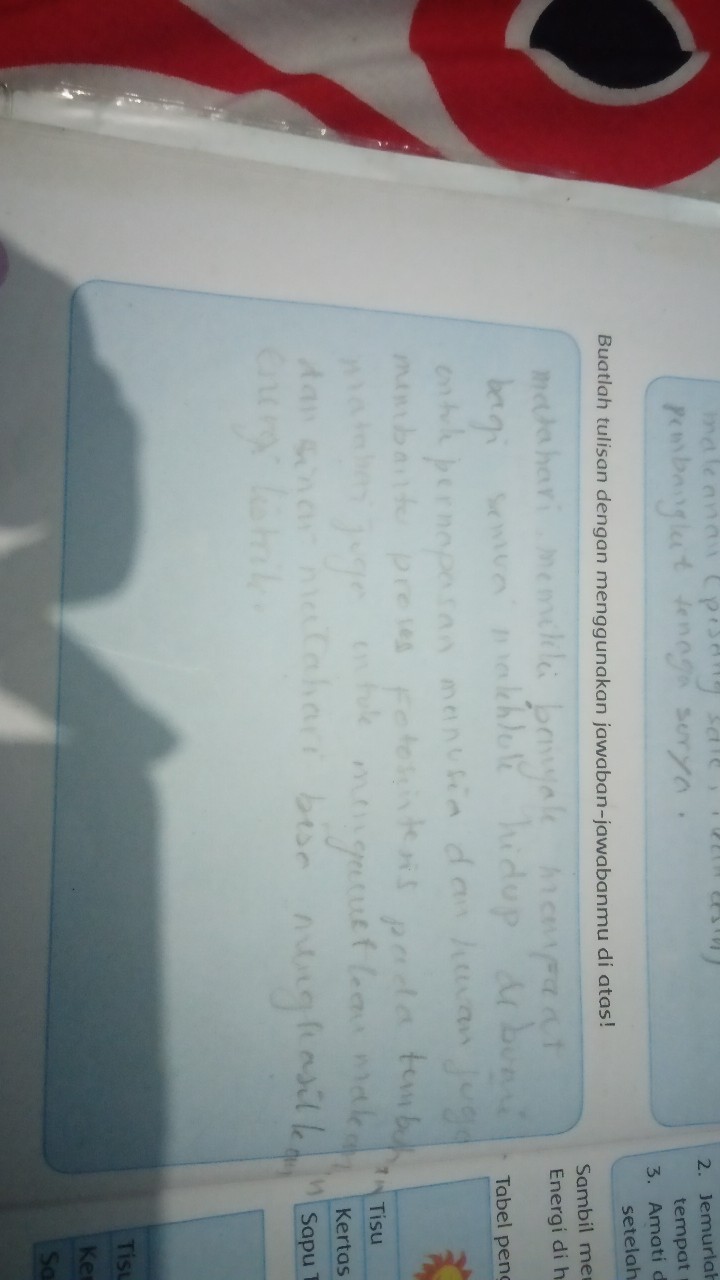 pembangkit tenaga surya.
Buatlah tulisan dengan menggunakan jawaban-jawabanmu di atas!
matahari memiliki banyak manfaat
bagi semua makhluk hidup di bumi
untuk pernapasan manusia dan hewan juga
membantu proses fotosintesis pada tumbuhan
matahari juga untuk mengawetkan makanan
dan sinar matahari bisa menghasilkan
Energi listrik.
2. Jemurla
tempat
3. Amati
setelah
Sambil me
Energi di h
Tabel pen
Tisu
Kertas
Sapu T
Tisu
Ke
Sa